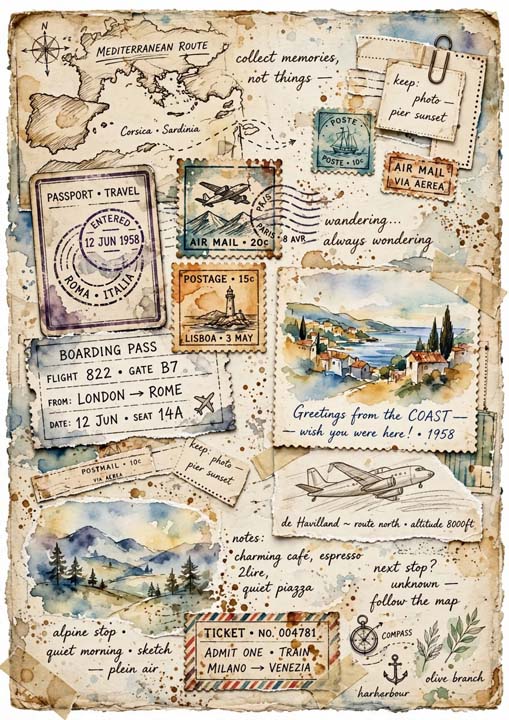 N
MEDITERRANEAN ROUTE
Corsica • Sardinia
collect memories,
not things —
keep:
photo —
pier sunset
POSTE
POSTE • 10c
AIR MAIL
VIA AEREA
PASSPORT • TRAVEL
ENTERED
12 JUN 1958
ROMA • ITALIA
AIR MAIL • 20c
PARIS
8 AVR
wandering...
always wondering
POSTAGE • 15c
LISBOA • 3 MAY
BOARDING PASS
FLIGHT 822 • GATE B7
FROM: LONDON → ROME
DATE: 12 JUN • SEAT 14A
Greetings from the COAST —
— wish you were here! • 1958
POSTMAIL • 10c
VIA AEREA
keep: photo
pier sunset
de Havilland ~ route north • altitude 8000ft
notes:
charming café, espresso
2lire,
quiet piazza
next stop?
unknown —
follow the map
alpine stop •
quiet morning • sketch
— plein air
TICKET • No. 004781
ADMIT ONE • TRAIN
MILANO → VENEZIA
COMPASS
harharbour
olive branch